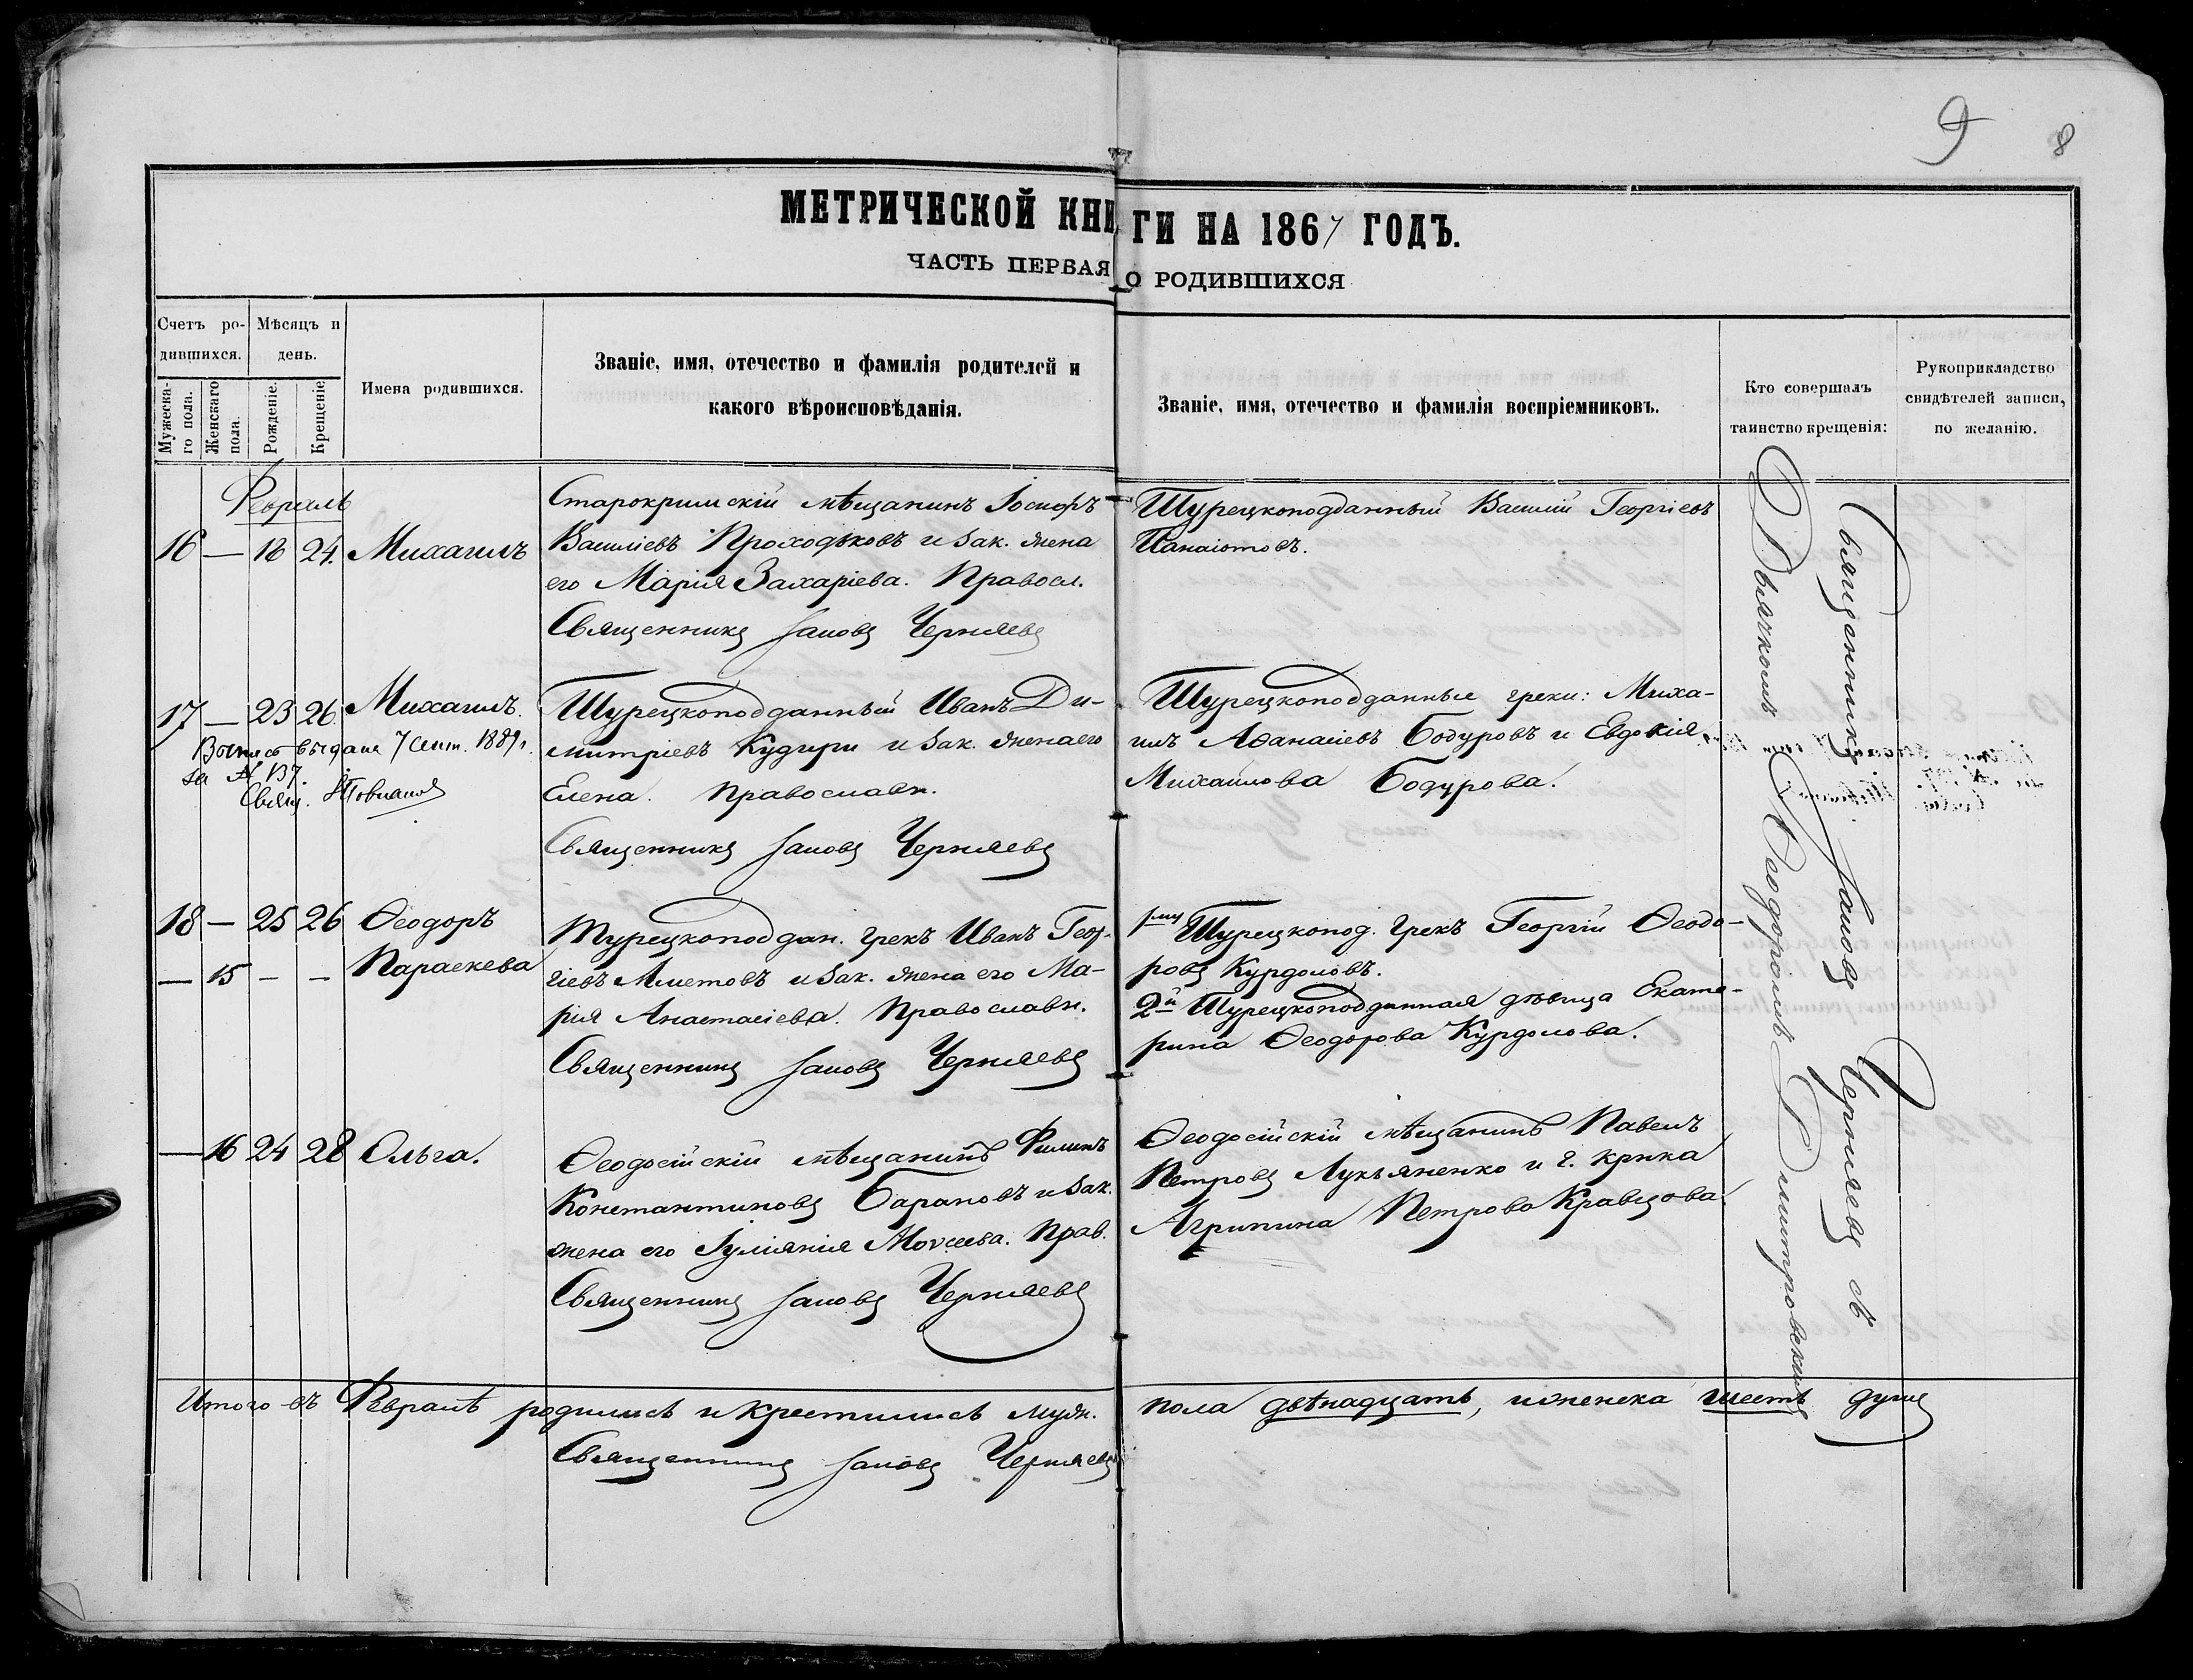 9 8
МЕТРИЧЕСКОЙ КНИГИ НА 1867 ГОДЪ.
ЧАСТЬ ПЕРВАЯ О РОДИВШИХСЯ
Счетъ ро-
дившихся.
Мужеска-
го пола.
Женскаго
пола.
Мѣсяцъ и
день.
Рожденіе.
Крещеніе.
Имена родившихся.
Званіе, имя, отечество и фамилія родителей и
какого вѣроисповѣданія.
Званіе, имя, отечество и фамилія воспріемниковъ.
Кто совершалъ
таинство крещенія:
Рукоприкладство
свидѣтелей записи,
по желанію.
Февраль
16 — 16 24. Михаилъ
Старокримскій мѣщанинъ Іосифъ
Василіевъ Проходьковъ и зак. жена
его Марія Захаріева. Правосл.
Священникъ Іаковъ Черняевъ
Турецкоподданный Василій Георгіевъ
Панаіотовъ.
17 — 23 26. Михаилъ.
выдана 7 Сент. 1889 г.
за № 137.
Свящ.
Турецкоподданный Иванъ Ди-
митріевъ Кудури и зак. жена его
Елена. Православн.
Священникъ Іаковъ Черняевъ
Турецкоподданные греки: Миха-
илъ Аѳанасіевъ Бодуровъ и Евдокія
Михаилова Бодурова.
18 — 25 26 Ѳеодоръ
— 15 — — Параскева
Турецкоподдан. грекъ Иванъ Геор-
гіевъ Аметовъ и зак. жена его Ма-
рія Анастасіева. Православн.
Священникъ Іаковъ Черняевъ
1му Турецкопод. грекъ Георгій Ѳеодо-
ровъ Курдоловъ.
2й Турецкоподданная дѣвица Екате-
рина Ѳеодорова Курдолова.
— 16 24 28 Ольга.
Ѳеодосійскій мѣщанинъ Филипъ
Константиновъ Барановъ и зак.
жена его Іуліянія Моѵсеева. Прав.
Священникъ Іаковъ Черняевъ
Ѳеодосійскій мѣщанинъ Павелъ
Петровъ Лукьяненко и г. крнка
Агрипина Петрова Кравцова
Священникъ Іаковъ Черняевъ съ
Дьячкомъ Ѳеодоромъ Димитровскимъ
Итого въ Февралѣ родилисъ и крестилисъ муж. пола двѣнадцать, и женска шесть душъ
Священникъ Іаковъ Черняевъ